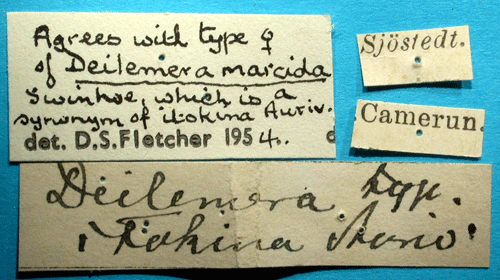 Agrees with type ♀
of Deilemera marcida
Swinhoe, which is a
synonym of itokina Auriv.
det. D.S.Fletcher 1954.
Sjöstedt.
Camerun.
Deilemera typ.
itokina Auriv.